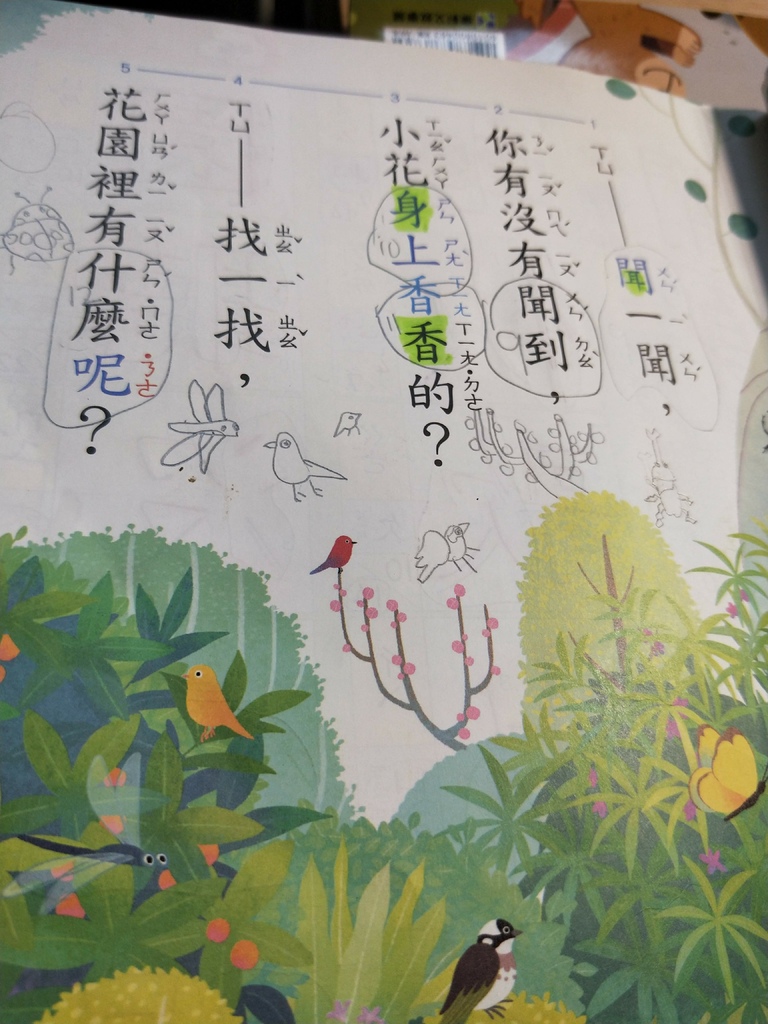 ㄒㄩ——聞一聞，
你有沒有聞到，
小花身上香香的？
ㄒㄩ——找一找，
花園裡有什麼呢？
1
2
3
4
5
9
10
11